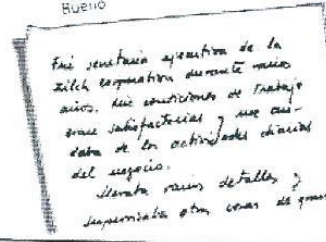 Bueno
Fui secretaria ejecutiva de la
Zilch corporation durante varios
años. Mis condiciones de trabajo
eran satisfactorias y me cui-
daba de las actividades diarias
del negocio.
Llevaba varios detalles y
supervisaba otras cosas de gran